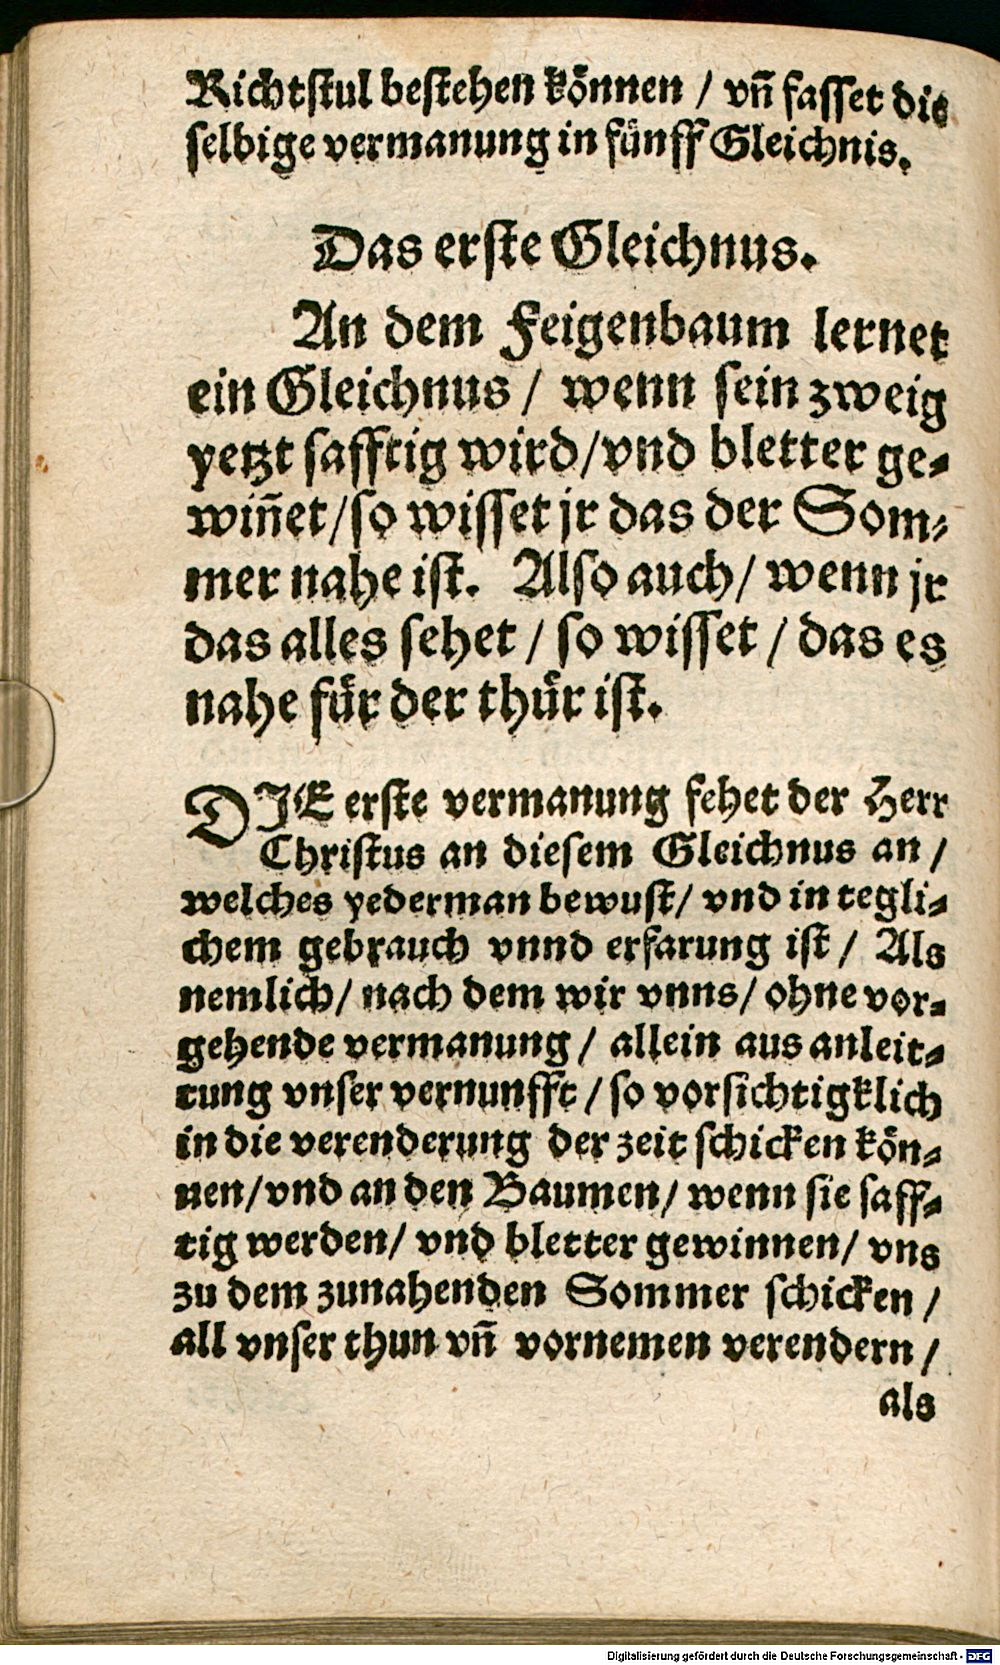 Richtſtul beſtehen können / vñ faſſet die
ſelbige vermanung in fünff Gleichnis.
Das erſte Gleichnus.
An dem Feigenbaum lernet
ein Gleichnus / wenn ſein zweig
yetzt ſafftig wird/vnd bletter ge⸗
wiñet/ſo wiſſet jr das der Som⸗
mer nahe iſt. Alſo auch/ wenn jr
das alles ſehet / ſo wiſſet / das es
nahe für der thür iſt.
DIE erſte vermanung fehet der Herr
Chriſtus an dieſem Gleichnus an /
welches yederman bewuſt/ vnd in tegli⸗
chem gebrauch vnnd erfarung iſt / Als
nemlich/ nach dem wir vnns/ ohne vor⸗
gehende vermanung / allein aus anleit⸗
tung vnſer vernunfft / ſo vorſichtigklich
in die verenderung der zeit ſchicken kön⸗
nen/vnd an den Baumen/ wenn ſie ſaff⸗
tig werden/ vnd bletter gewinnen/ vns
zu dem zunahenden Sommer ſchicken /
all vnſer thun vñ vornemen verendern /
als
Digitalisierung gefördert durch die Deutsche Forschungsgemeinschaft - DFG